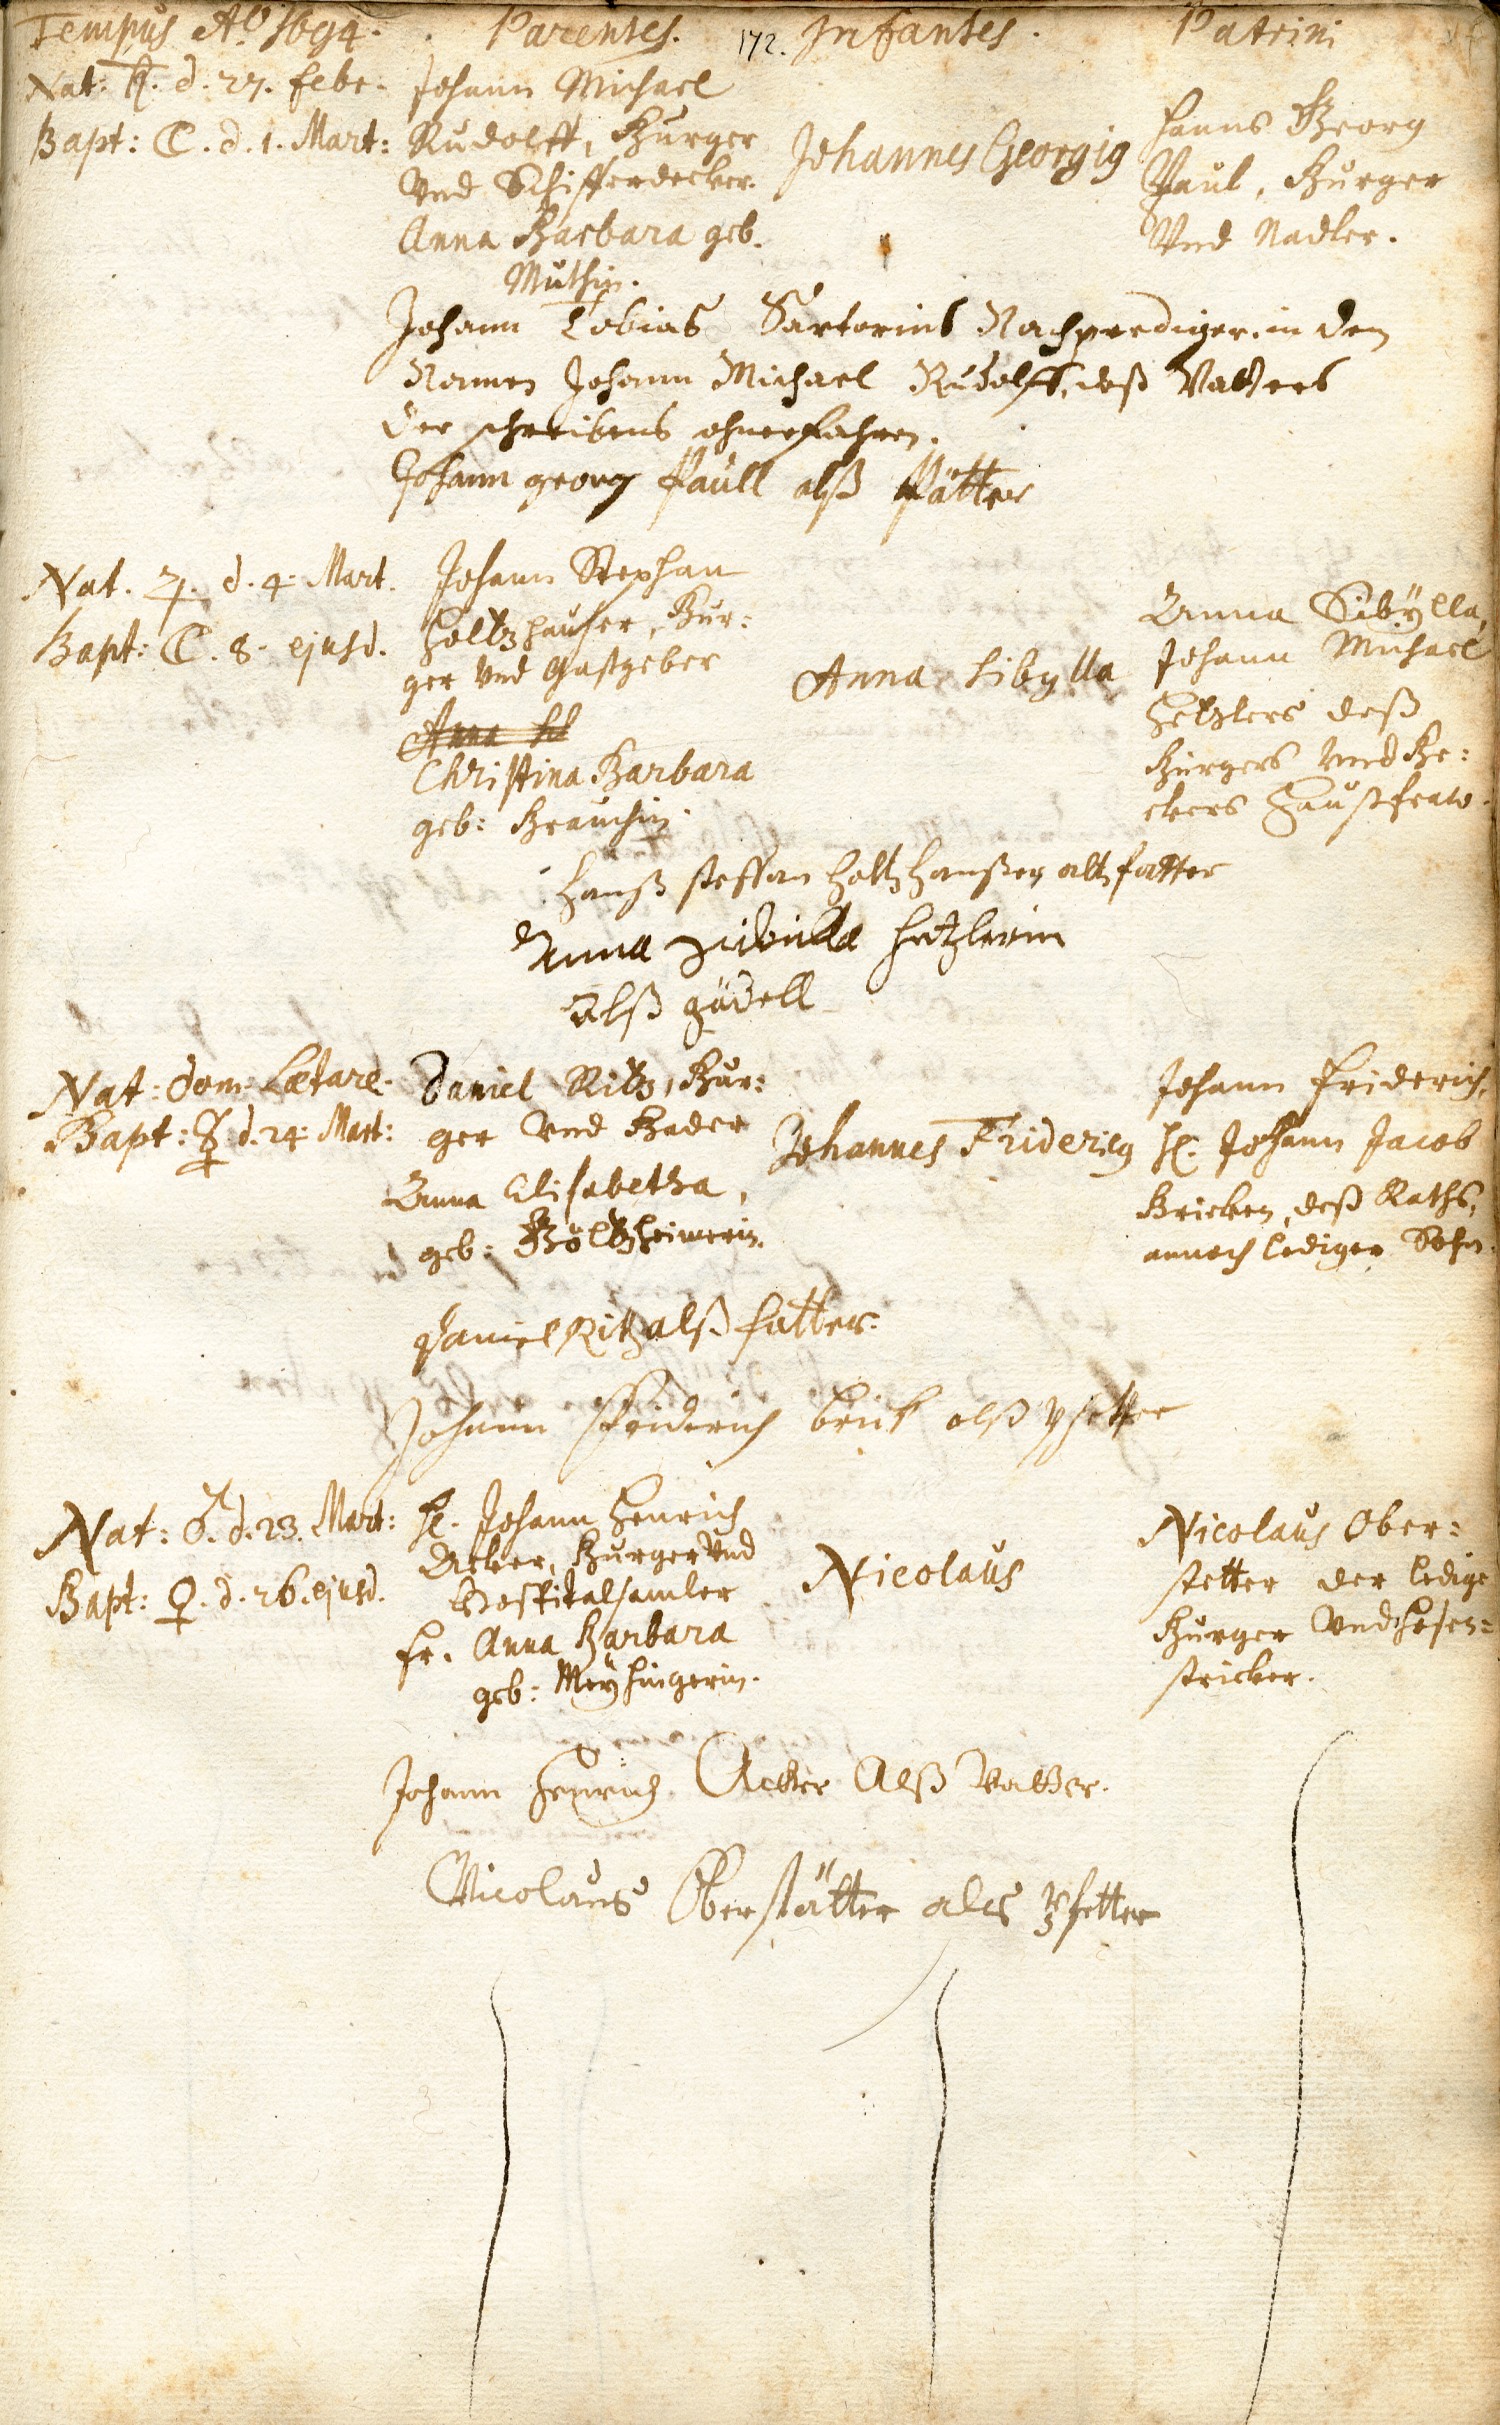 Tempus Ao. 1694. Parentes. 172. Infantes. Patrini
Nat: ♄. d. 27. febr.
Bapt: ☾. d. 1. Mart:
Johann Michael
Rudolff, Burger
Vnd Schifferdecker.
Anna Barbara geb.
Muthin.
Johannes Georgig
Hanns Georg
Paul, Burger
Vnd Nadler.
Johann Tobias Sartorius Nachprediger in den
Namen Johann Michael Rudolffs, deß Vatters
der schreibens ohnerfahren.
Johann georg Paull alß Pätter
Nat. ♃. d. 4. Mart.
Bapt: ☾. 8. ejusd.
Johann Stephan
Holtzhauser, Bur:
ger Vnd Gastgeber
Christina Barbara
geb: Brauchin.
Anna Sibylla
Anna Sibÿlla,
Johann Michael
Hetzlers deß
Burgers Vnd Be:
ckers Haußfraw.
Hanß steffan Holtzhaußer altz fatter
Anna Hetzlerin
Alß gödell
Nat: Dom: Lætare.
Bapt: ☿ d. 24. Mart:
Daniel Ritz, Bur:
ger Vnd Bader
Anna Elisabetha,
geb: Böltzheimerin.
Johannes Friderig
Johann Friderich,
H. Johann Jacob
Bricken, deß Raths,
annoch lediger Sohn.
Daniel Ritz alß fatter.
Johann Friderich brick alß pfetter
Nat: ♂. d. 23. Mart:
Bapt: ♀. d. 26. ejusd.
H. Johann Henrich
Acker, Burger Vnd
Hospitalsamler
fr. Anna Barbara
geb: Meÿhingerin.
Nicolaus
Nicolaus Ober:
stetter der ledige
Burger Vnd Hosen=
stricker.
Johann Henrich Acker Alß Vatter.
Nicolaus Oberstätter als pfetter